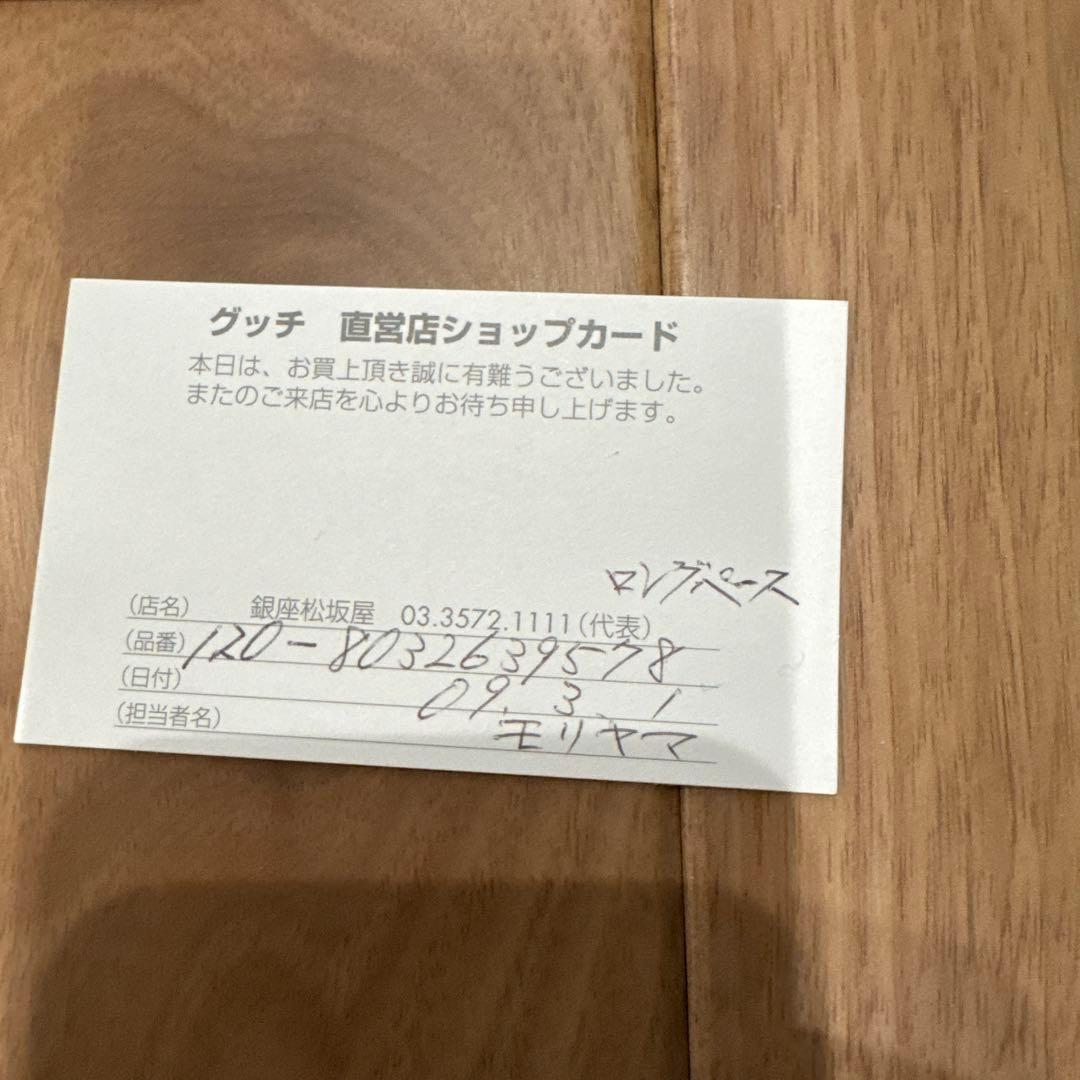 グッチ　直営店ショップカード
本日は、お買上頂き誠に有難うございました。
またのご来店を心よりお待ち申し上げます。
ロングペース
(店名)　銀座松坂屋　03.3572.1111(代表)
(品番) 120-8032639578
(日付) 09.3.1
(担当者名) モリヤマ